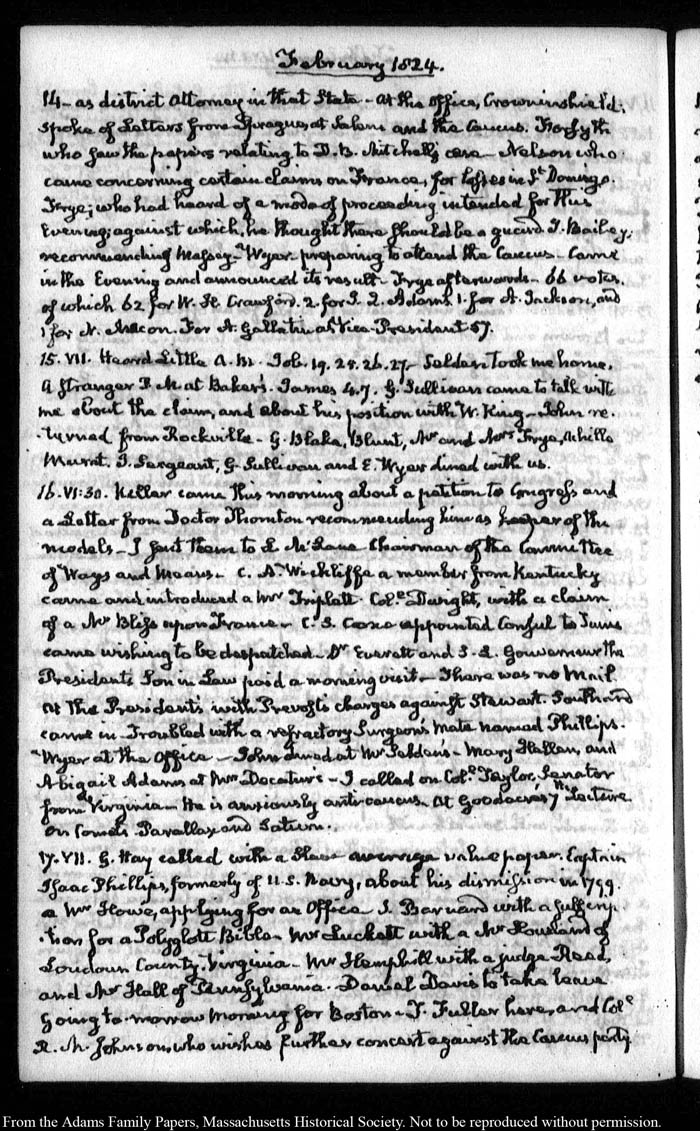 February 1824.
14 – as district Attorney in that State – At the office, Crowninshield.
spoke of Letters from Sprague, at Salem and the Caucus. Forsyth
who saw the papers relating to D. B. Mitchell's case – Nelson who
came concerning certain claims on France, for losses in St. Domingo.
Frye; who had heard of a mode of proceeding intended for this
Evening; against which, he thought there should be a guard. J. Bailey,
recommending Massey – Wyer preparing to attend the Caucus – Came
in the Evening and announced its result – Frye afterwards – 66 votes.
of which 62 for W. H. Crawford. 2. for J. Q. Adams 1. for A. Jackson, and
1 for N. Macon. For A. Gallatin as Vice-President 57.
15. VII. Heard Little A.M. Job. 19. 25. 26. 27 – Selden took me home.
A stranger P.M. at Baker's. James 4.7. G. Sullivan came to talk with
me about the claim, and about his position with W. King – John re-
-turned from Rockville – G. Blake, Blunt, Mr and Mrs Frye, Achille
Murat. J. Sergeant, G. Sullivan and E. Wyer dined with us.
16. VI:30. Kellar came this morning about a petition to Congress and
a Letter from Doctor Thornton recommending him as keeper of the
models – I sent them to L. McLane Chairman of the Committee
of Ways and Means – C. A. Wickliffe a member from Kentucky
came and introduced a Mr Triplett. Coll. Dwight, with a claim
of a Mr Bliss upon France – C. S. Coxe appointed Consul to Tunis
came wishing to be despatched – Dr Everett and S. L. Gouverneur the
Presidents Son in Law paid a morning visit – There was no Mail.
At the Presidents with Prevost's charges against Stewart. Southard
came in – Troubled with a refractory Surgeon's mate named Phillips.
Wyer at the Office – John dined at Mr Selden's – Mary Hellen, and
Abigail Adams at Mrs Decatur's – I called on Coll. Taylor, Senator
from Virginia – He is anxiously anti-caucus. At Goodacre's 7th Lecture.
On Comets Parallax and Saturn.
17. VII. G. Hay called with a Slave average value paper. Captain
Isaac Phillips, formerly of U.S. Navy, about his dismission in 1799.
a Mr Howe, applying for an Office J. Barnard with a subscrip-
-tion for a Polyglott Bible – Mr Luckett with a Mr of
Loudoun County. Virginia – Mr Hemphill with a Judge Read,
and Mr Hall of Pennsylvania. Daniel Davis to take leave
going to-morrow morning for Boston – T. Fuller here, and Coll.
R. M. Johnson, who wishes further concert against the Caucus party
From the Adams Family Papers, Massachusetts Historical Society. Not to be reproduced without permission.